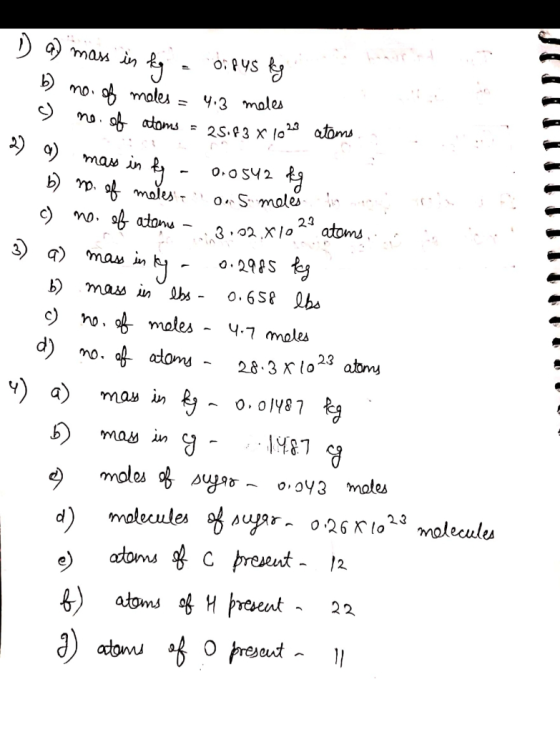 1) a) mass in kg = 0.845 kg
b) no. of moles = 4.3 moles
c) no. of atoms = 25.83 x 10²³ atoms
2) a) mass in kg - 0.0542 kg
b) no. of moles - 0.5 moles
c) no. of atoms - 3.02 x 10²³ atoms.
3) a) mass in kg - 0.2985 kg
b) mass in lbs - 0.658 lbs
c) no. of moles - 4.7 moles
d) no. of atoms - 28.3 x 10²³ atoms
4) a) mass in kg - 0.01487 kg
b) mass in cg - 1487 cg
c) moles of sugar - 0.043 moles
d) molecules of sugar - 0.26 x 10²³ molecules
e) atoms of C present - 12
f) atoms of H present - 22
g) atoms of O present - 11